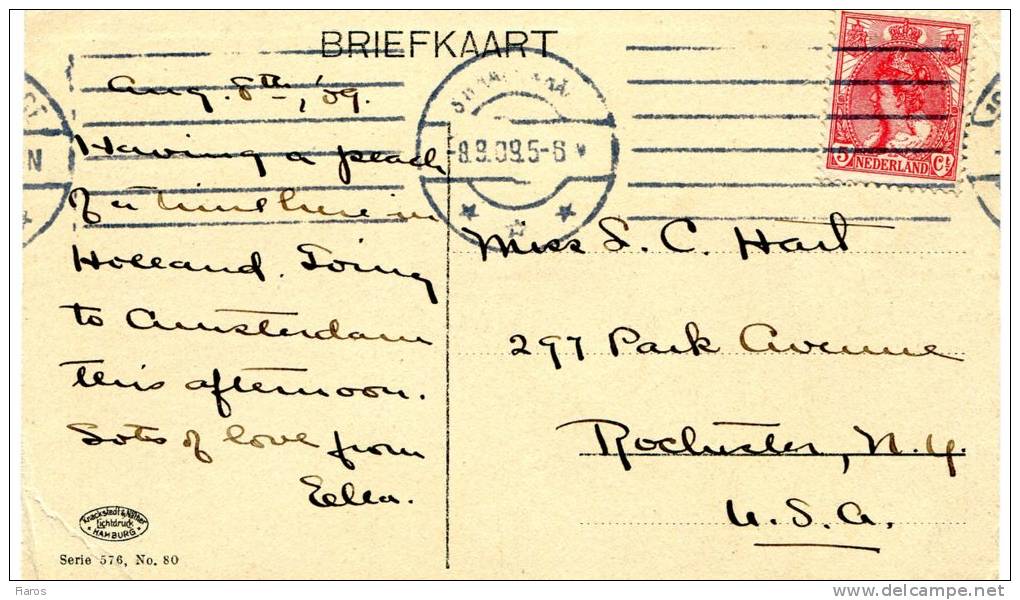 BRIEFKAART
Aug. 8th, '09.
Having a peach
of a time here in
Holland. Going
to Amsterdam
this afternoon.
Lots of love from
Ella.
8.9.09.5-6 N
5 NEDERLAND Ct
Miss L. C. Hart
297 Park Avenue
Rochester, N.Y.
U.S.A.
Knackstedt & Näther
Lichtdruck
HAMBURG
Serie 576, No. 80
Fiaros
delcampe.net